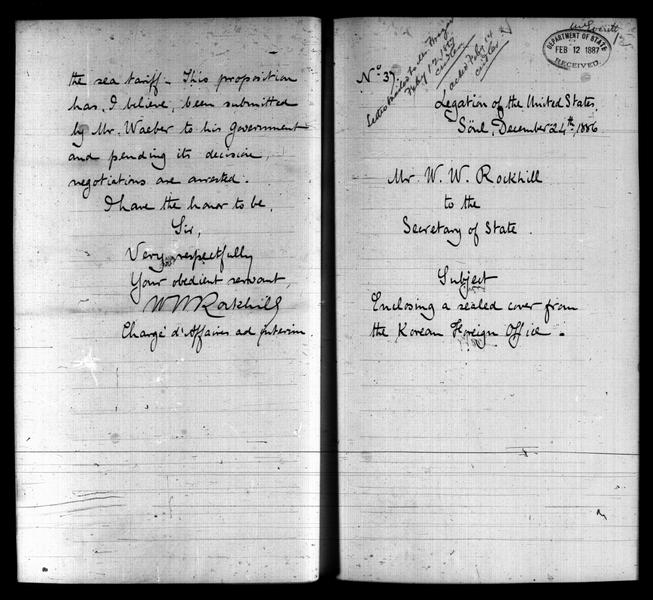 the sea tariff – This proposition
has, I believe, been submitted
by Mr. Waeber to his Government
and pending its decision,
negotiations are arrested.
I have the honor to be,
Sir,
Very respectfully
Your obedient servant,
WWRockhill
Chargé d'Affaires ad interim.
Nº 37.
Feby 12, 1887
acked Feby 14
DEPARTMENT OF STATE
FEB 12 1887
RECEIVED
Legation of the United States.
Söul, December 24th, 1886
Mr. W. W. Rockhill
to the
Secretary of State.
Subject
Enclosing a sealed cover from
the Korean Foreign Office.